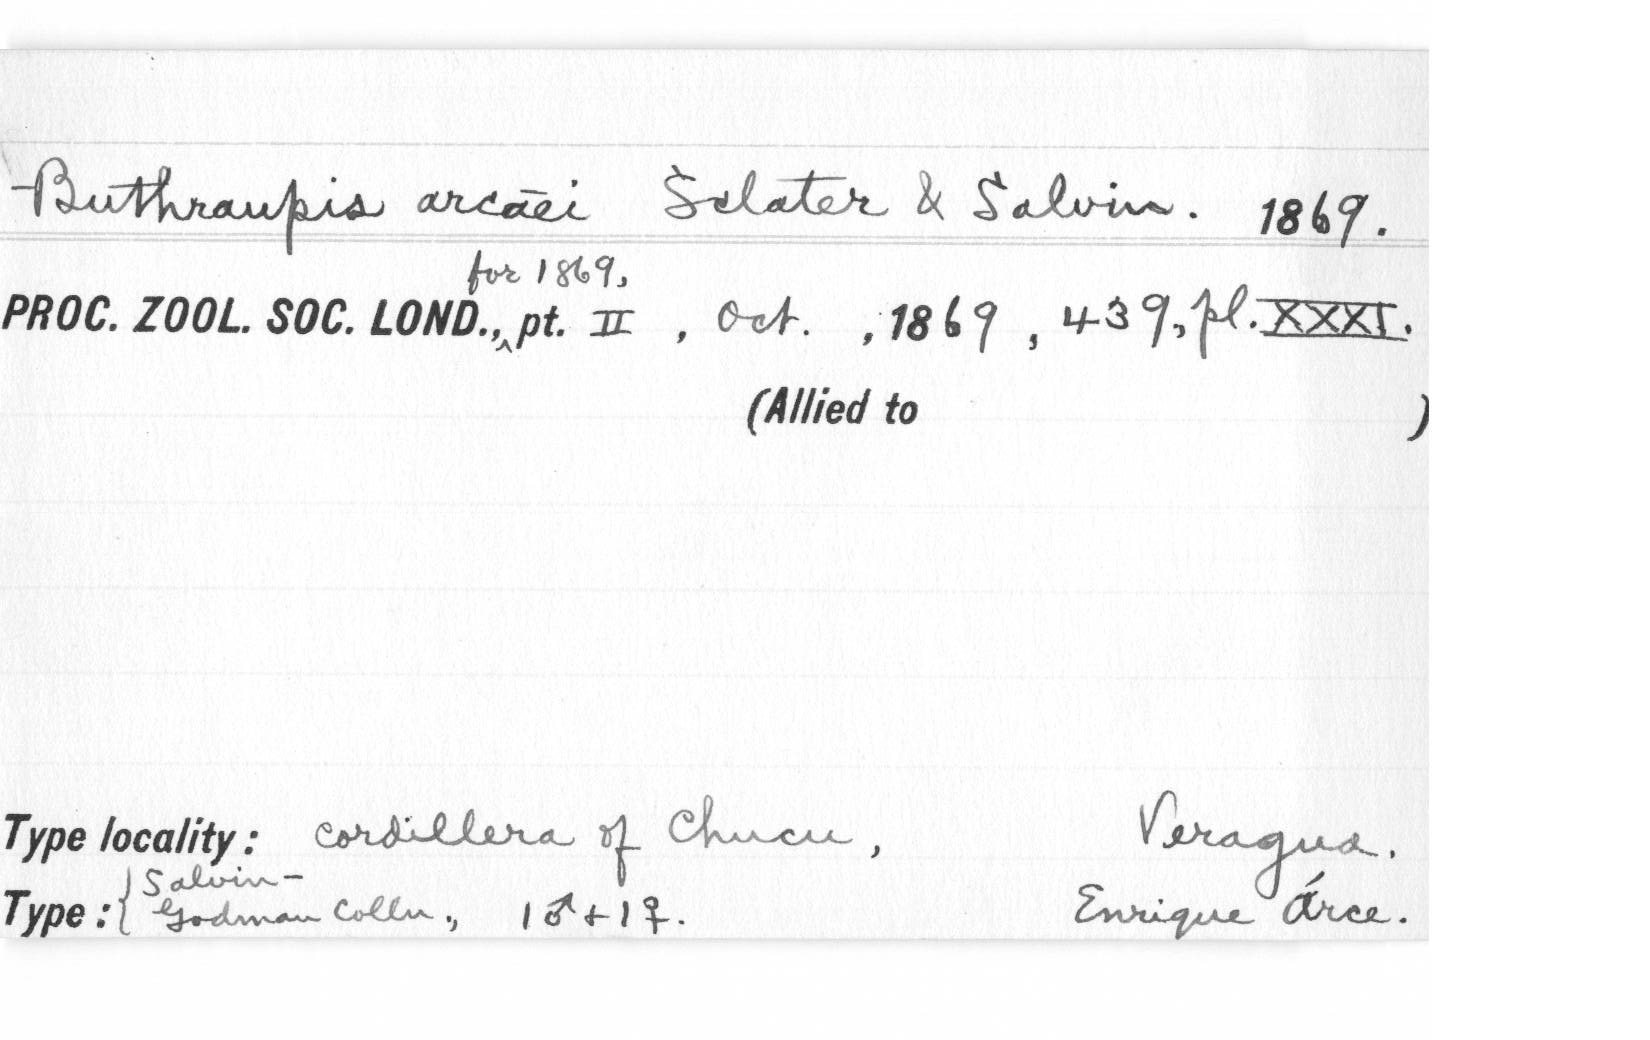 Buthraupis arcæi Sclater & Salvin. 1869.
for 1869,
PROC. ZOOL. SOC. LOND., ^ pt. II , Oct. , 1869 , 439, pl. XXXI.
(Allied to )
Type locality: cordillera of Chucu, Veragua.
Salvin-
Type: { Godman Colln., 1♂+1♀. Enrique Árce.